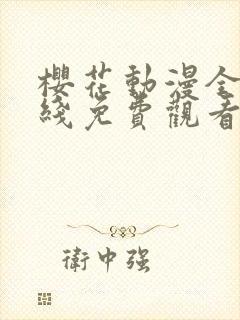 櫻花動漫全
綫免費觀看
衛中强